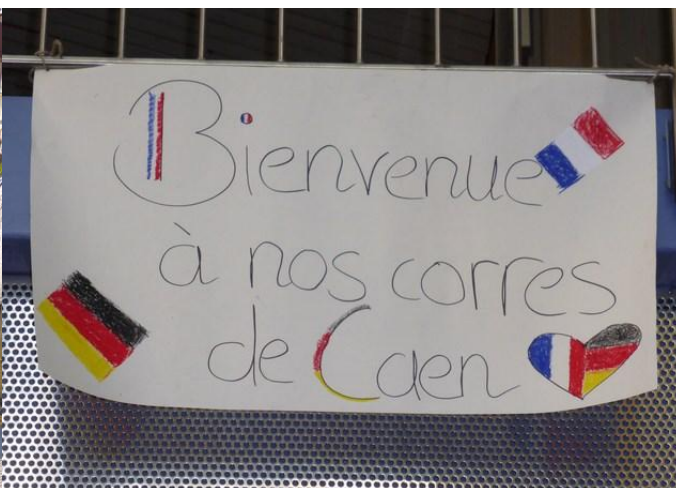 Bienvenue
à nos corres
de Caen